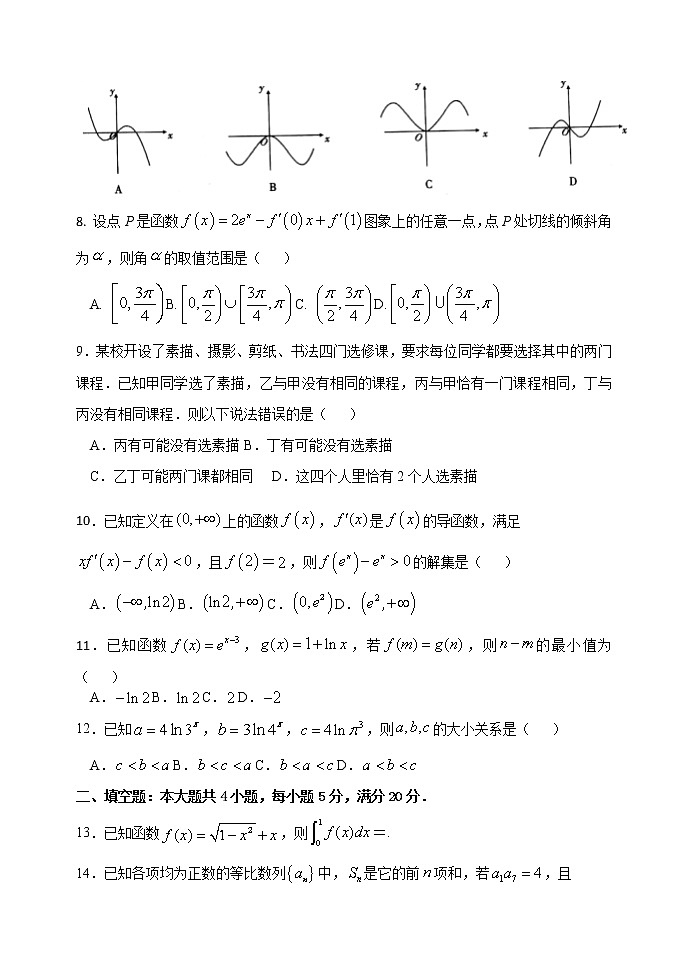 y x O A
y x O B
y x O C
y x O D
8. 设点 P 是函数 f(x) = 2eˣ − f′(0)x + f′(1) 图象上的任意一点,点 P 处切线的倾斜角
为 α ,则角 α 的取值范围是( )
A. [0, 3π/4) B. [0, π/2) ∪ [3π/4, π) C. (π/2, 3π/4) D. [0, π/2) ∪ (3π/4, π)
9.某校开设了素描、摄影、剪纸、书法四门选修课,要求每位同学都要选择其中的两门
课程.已知甲同学选了素描,乙与甲没有相同的课程,丙与甲恰有一门课程相同,丁与
丙没有相同课程.则以下说法错误的是( )
A.丙有可能没有选素描 B.丁有可能没有选素描
C.乙丁可能两门课都相同 D.这四个人里恰有 2 个人选素描
10.已知定义在 (0,+∞) 上的函数 f(x) , f′(x) 是 f(x) 的导函数,满足
xf′(x) − f(x) < 0 ,且 f(2) = 2 ,则 f(eˣ) − eˣ > 0 的解集是( )
A. (−∞,ln2) B. (ln2,+∞) C. (0,e²) D. (e²,+∞)
11.已知函数 f(x) = eˣ⁻³ , g(x) = 1 + ln x ,若 f(m) = g(n) ,则 n − m 的最小值为
( )
A. −ln 2 B. ln 2 C. 2 D. −2
12.已知 a = 4 ln 3^π , b = 3ln 4^π , c = 4ln π³ ,则 a,b,c 的大小关系是( )
A. c < b < a B. b < c < a C. b < a < c D. a < b < c
二、填空题:本大题共 4 小题,每小题 5 分,满分 20 分.
13.已知函数 f(x) = √(1 − x²) + x ,则 ∫₀¹ f(x)dx =.
14.已知各项均为正数的等比数列 {aₙ} 中, Sₙ 是它的前 n 项和,若 a₁a₇ = 4 ,且